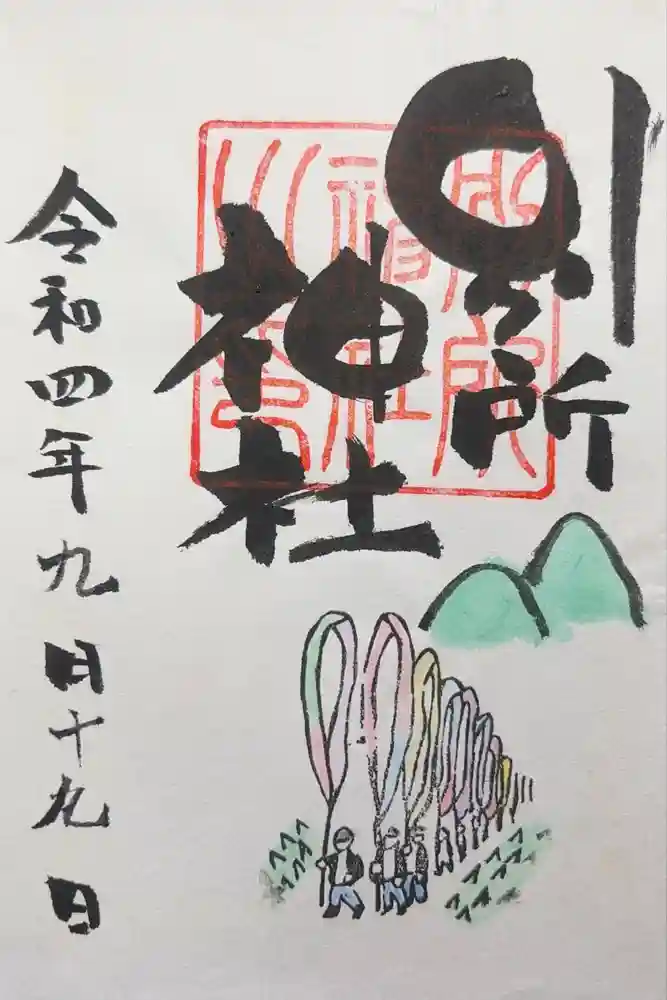 別所
神社
令和四年九月十九日